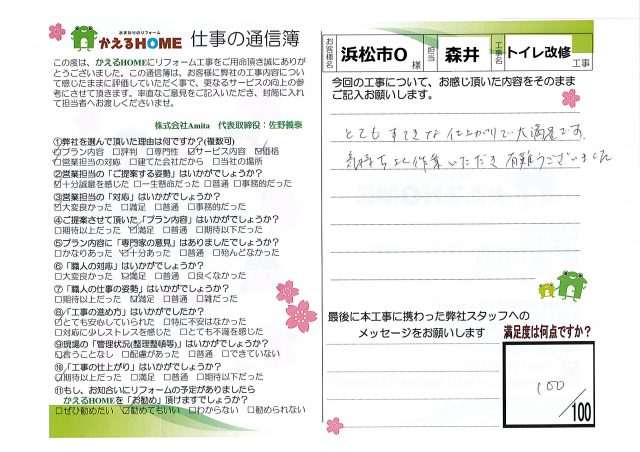 水まわりのリフォーム
かえるHOME 仕事の通信簿
この度は、かえるHOMEにリフォーム工事をご用命頂き誠にありが
とうございました。この通信簿は、お客様に弊社の工事内容につい
て感じたままに評価していただく事で、更なるサービスの向上の参
考にさせて頂きます。率直なご意見をご記入いただき、封筒に入れ
て担当者へお渡しくださいませ。
株式会社Amita 代表取締役：佐野義泰
①弊社を選んで頂いた理由は何ですか?(複数可)
☑プラン内容 □評判 □専門性 ☑サービス内容 ☑価格
□営業担当の対応 □建てた会社だから □当社の場所
②営業担当の「ご提案する姿勢」はいかがでしょうか？
☑十分誠意を感じた □一生懸命だった □普通 □事務的だった
③営業担当の「対応」はいかがでしょうか？
☑大変良かった □満足 □普通 □事務的だった
④ご提案させて頂いた「プラン内容」はいかがでしょうか？
□期待以上だった ☑満足 □普通 □期待以下だった
⑤プラン内容に「専門家の意見」はありましたでしょうか？
□かなりあった ☑十分あった □普通 □殆んどなかった
⑥「職人の対応」はいかがでしょうか？
□大変良かった ☑満足 □普通 □良くなかった
⑦「職人の仕事の姿勢」はいかがでしょうか？
□期待以上だった ☑満足 □普通 □雑だった
⑧「工事の進め方」はいかがでしたか？
☑とても安心していられた □特に不安はなかった
□対応に少しストレスを感じた □とても不満を感じた
⑨現場の「管理状況(整理整頓等)」はいかがでしょうか？
☑言うことなし □配慮があった □普通 □できていない
⑩「工事の仕上がり」はいかがでしょうか？
☑期待以上だった □満足 □普通 □期待以下だった
⑪もし、お知合いにリフォームの予定がありましたら
かえるHOMEを「お勧め」頂けますでしょうか？
□ぜひ勧めたい ☑勧めてもいい □わからない □勧められない
お客様名 浜松市O 様 担当 森井 工事名 トイレ改修 工事
今回の工事について、お感じ頂いた内容をそのまま
ご記入お願いします。
とても すてきな 仕上がりで 大満足です。
気持ちよく作業いただき 有難うございました
最後に本工事に携わった弊社スタッフへの
メッセージをお願いします
満足度は何点ですか？
100
/100